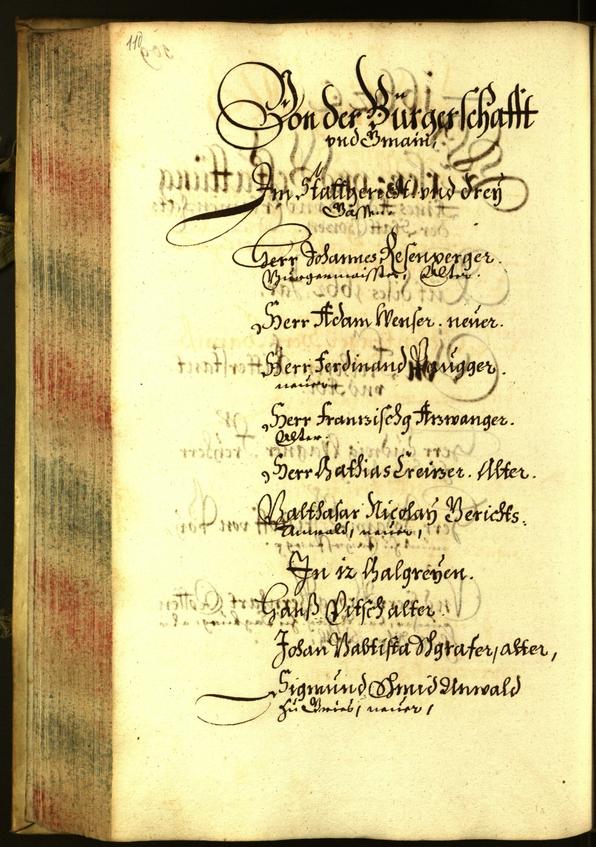 110
Von der Bürgerschafft
vnd Gmain,
Im Stattgericht vnd drey
Gassen.
Herr Johannes Resenperger.
Burgermaister, Alter.
Herr Adam Wenser. neuer.
Herr Ferdinand
neuer
Herr Frantzischg Arzwanger.
Alter.
Herr Mathias Creizer. Alter.
Balthasar Nicolaÿ Gerichts
Anwald, neuer,
In 12 Malgreÿen.
Hanß Pitsch alter.
Johan Babtista Schgrafer, alter,
Sigmund Schmid Anwald
zu Gries, neuer,